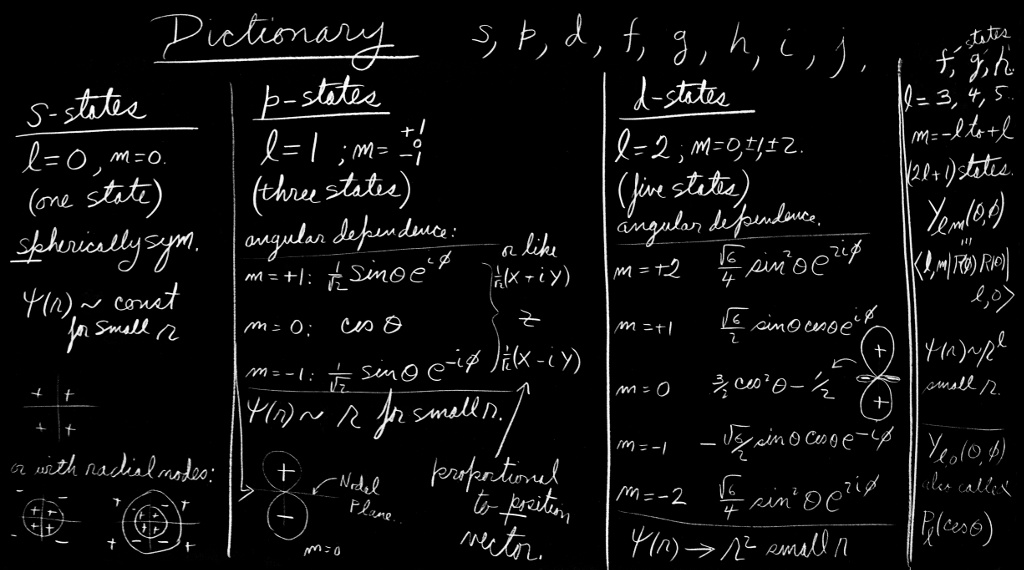 Dictionary
s, p, d, f, g, h, i, j,
s-states
l=0, m=0.
(one state)
spherically sym.
ψ(r) ~ const
for small r
+ +
+ +
or with radial nodes:
- -
+ +
+ +
- -
+ +
- -
+ +
+ +
- -
+ +
p-states
l=1 ; m= +1 0 -1
(three states)
angular dependence:
or like
m=+1: 1/√2 sinθ e^{iϕ} 1/√2(X+iY)
m=0: cos θ z
m=-1: 1/√2 sinθ e^{-iϕ} 1/√2(X-iY)
ψ(r) ~ r for small r.
+
-
Nodal
Plane..
m=0
proportional
to position
vector.
d-states
l=2 ; m=0,±1,±2.
(five states)
angular dependence.
m=+2 √6/4 sin²θ e^{2iϕ}
m=+1 √6/2 sinθ cosθ e^{iϕ}
m=0 3/2 cos²θ - 1/2
+
+
m=-1 -√6/2 sinθ cosθ e^{-iϕ}
m=-2 √6/4 sin²θ e^{2iϕ}
ψ(r) → r² small r
states
f, g, h
l= 3, 4, 5.
m=-l to +l
(2l+1) states.
Y_{lm}(θ,ϕ)
≡
l,0⟩
ψ(r)~r^l
small r.
Y_{l0}(θ,ϕ)
also called
P_l(cosθ)